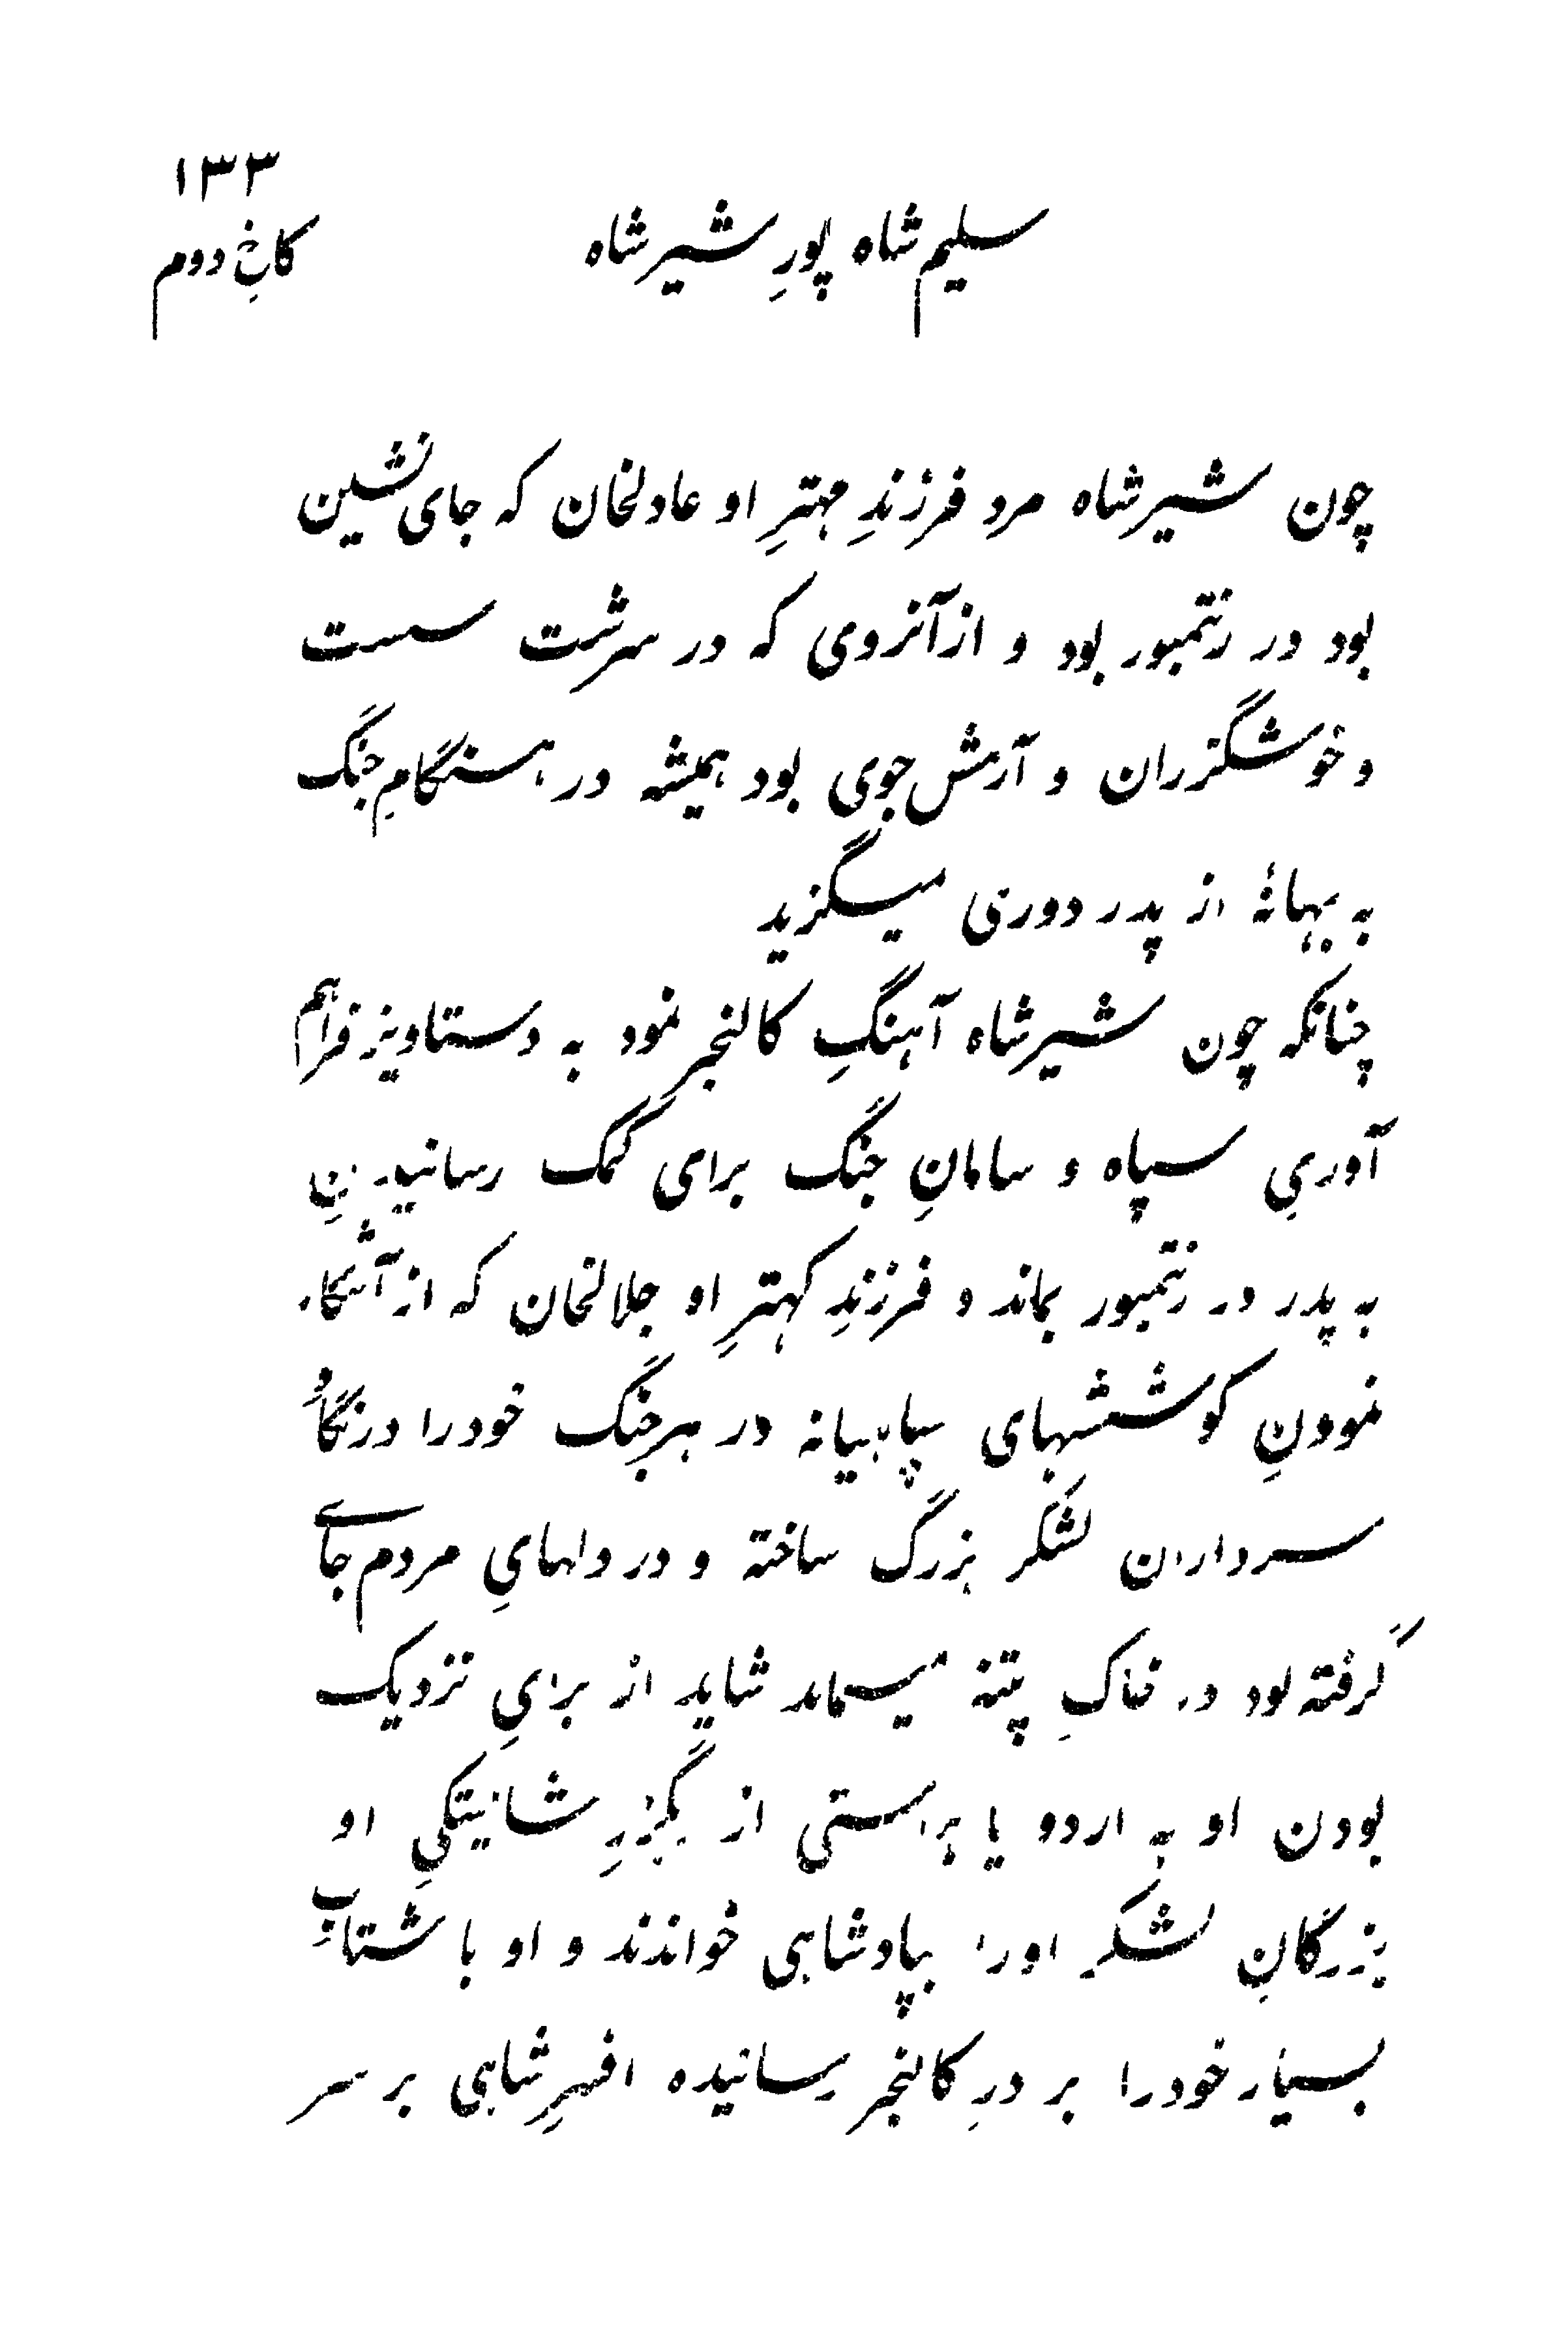 ۱۳۳
سلیم شاه پورِ شیرشاه
کاخِ دوم
چون شیرشاه مرد فرزندِ مهترِ او عادلخان که جای نشین
بود در رنتمبور بود و از آنروی که در سرشت سست
و خوشگزران و آرمش جوی بود همیشه در هنگامِ جنگ
به بهانهٔ از پدر دوری میگزید
چنانکه چون شیرشاه آهنگِ کالنجر نمود به دستاویز فراهم
آوریِ سپاه و سامانِ جنگ برای کمک رسانیدنِ
به پدر در رنتمبور بماند و فرزندِ کهترِ او جلالخان که از آشکار
نمودنِ کوششهای سپاهیانه در هر جنگ خودرا در نگاهِ
سرداران لشکر بزرگ ساخته و در دلهایِ مردم جاے
گرفته بود در خاکِ پتنه میماند شاید از برایِ نزدیک
بودن او به اردو یا براستی از رهگزرِ شایستگیِ او
بزرگانِ لشکر اورا بپادشاهی خواندند و او با شتابِ
بسیار خودرا بر درِ کالنجر رسانیده افسرِ شاهی بر سر